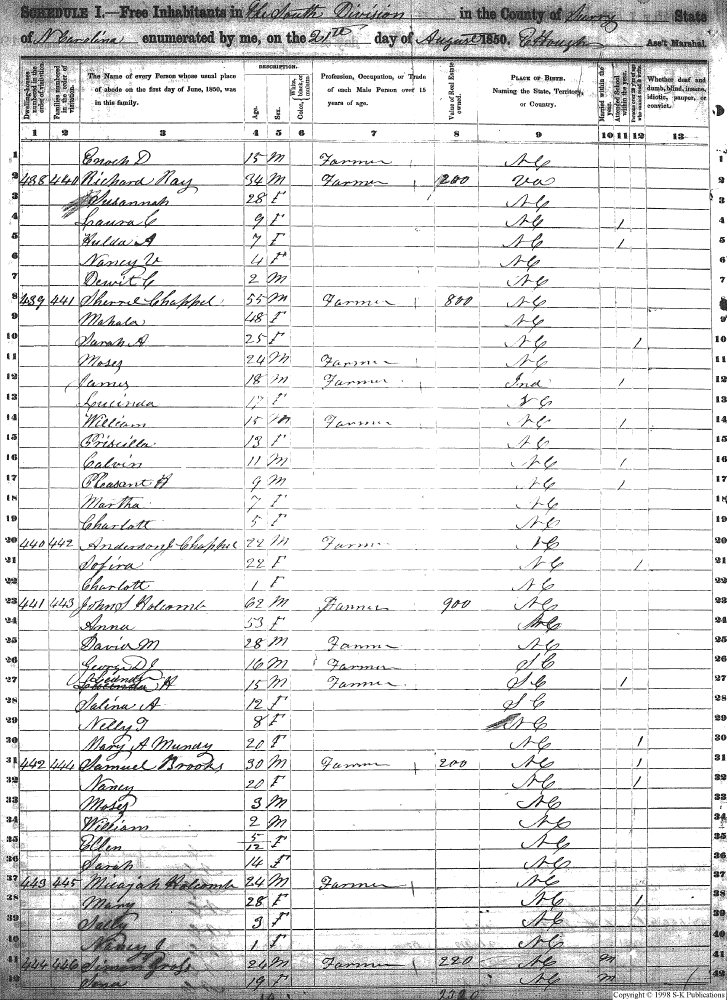 SCHEDULE I.—Free Inhabitants in the South Division in the County of Surry State
of N Carolina enumerated by me, on the 21th day of August 1850. Ass't Marshal.
Dwelling-houses numbered in the order of visitation.
Families numbered in the order of visitation.
The Name of every Person whose usual place of abode on the first day of June, 1850, was in this family.
DESCRIPTION.
Age.
Sex.
Color, White, black, or mulatto.
Profession, Occupation, or Trade of each Male Person over 15 years of age.
Value of Real Estate owned.
PLACE OF BIRTH. Naming the State, Territory, or Country.
Married within the year.
Attended School within the year.
Persons over 20 y'rs of age who cannot read & write.
Whether deaf and dumb, blind, insane, idiotic, pauper, or convict.
1 2 3 4 5 6 7 8 9 10 11 12 13
1 Enoch D 15 M Farmer N C 1
2 438 440 Richard Ray 34 M Farmer 200 Va 2
3 Susannah 28 F N C 3
4 Laura C 9 F N C / 4
5 Hulda A 7 F N C / 5
6 Nancy V 4 F N C 6
7 Dewit C 2 M N C 7
8 439 441 Sherrel Chappel 55 M Farmer 800 N C 8
9 Mahala 48 F N C 9
10 Sarah A 25 F N C / 10
11 Moses 24 M Farmer N C 11
12 James 18 M Farmer Ind / 12
13 Lucinda 17 F N C 13
14 William 15 M Farmer N C / 14
15 Priscilla 13 F N C 15
16 Calvin 11 M N C / 16
17 Pleasant H 9 M N C / 17
18 Martha 7 F N C 18
19 Charlott 5 F N C 19
20 440 442 Anderson J Chappel 22 M Farmer N C 20
21 Sofira 22 F N C / 21
22 Charlott 1 F N C 22
23 441 443 John S Holcomb 62 M Farmer 900 N C 23
24 Anna 53 F N C 24
25 David M 28 M Farmer N C 25
26 George D J 16 M Farmer S C 26
27 H 15 M Farmer S C / 27
28 Salina A 12 F S C 28
29 Nelly T 8 F N C 29
30 Mary A Mundy 20 F N C / 30
31 442 444 Samuel Brooks 30 M Farmer 200 N C / 31
32 Nancy 20 F N C / 32
33 Moses 3 M N C 33
34 William 2 M N C 34
35 Ellen 5/12 F N C 35
36 Sarah 14 F N C 36
37 443 445 Micajah Holcomb 24 M Farmer N C 37
38 Mary 28 F N C / 38
39 Sally 3 F N C 39
40 Nancy J 1 F N C 40
41 444 446 Simon Gross 24 M Farmer 220 N C m 41
42 19 F N C m 42
Copyright © 1998 S-K Publications